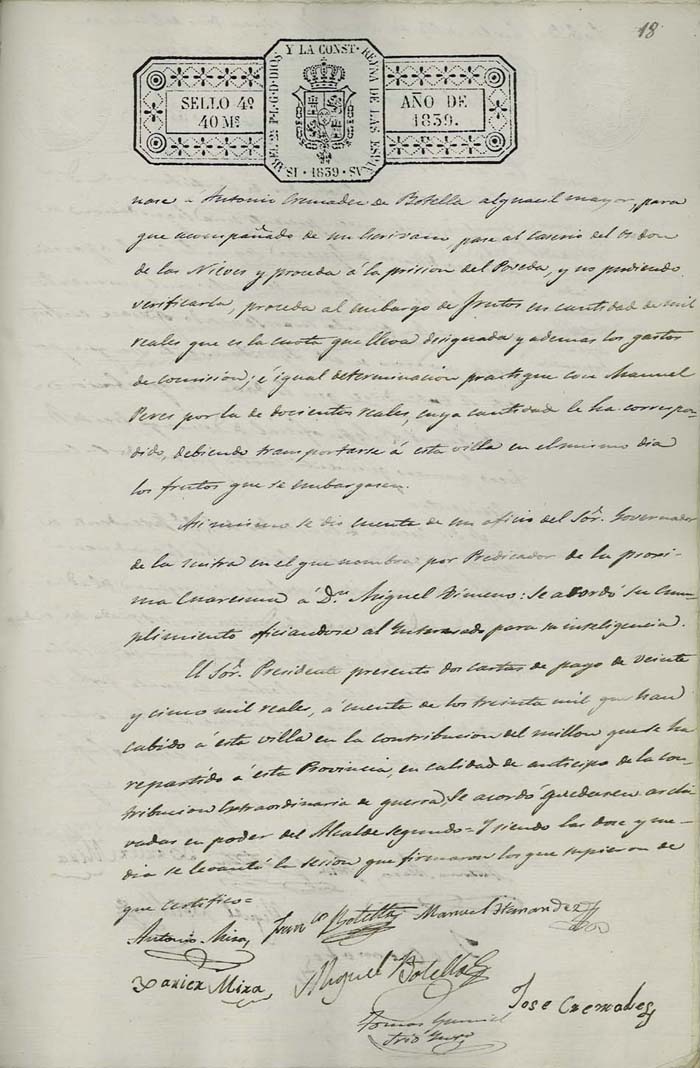 18
SELLO 4º
40 Ms
ISABEL 2ª P.L.G.D DIOS Y LA CONST. REYNA DE LAS ESPAÑAS
1839
AÑO DE
1839.
nase á Antonio Cremades de Botella alguacil mayor, para
que acompañado de un Escrivano, pase al Caserio del Hondon
de las Nieves y proceda á la prision del Poveda, y no pudiendo
verificarla, proceda al embargo de frutos en cantidad de mil
reales que es la cuota que lleva designada y ademas los gastos
de comision; é igual determinacion practique con Manuel
Peres por la de docientos reales, cuya cantidad le ha correspon-
dido, debiendo transportarse á esta villa en el mismo dia
los frutos que se embargasen.
Asimismo se dio cuenta de un oficio del Sor. Governador
de la mitra en el que nombra por Predicador de la proxi-
ma Cuaresma á Dn. Miguel Ximeno: Se acordó su cum-
plimiento oficiandose al Interesado para su inteligencia.
El Sor. Presidente presentó dos cartas de pago de veinte
y cinco mil reales, á cuenta de los treinta mil que han
cabido á esta villa en la contribucion del millon que se ha
repartido á esta Provincia, en calidad de anticipo de la con-
tribucion Extraordinaria de guerra, Se acordó quedasen archi-
vadas en poder del Alcalde segundo = Y siendo las doce y me-
dia se levantó la sesion que firmaron los que supieron de
que certifico =
Antonio Mira
Franco Botella
Manuel Hernandez
Xavier Mira
Miguel Botella
Jose Cremades
Tomas